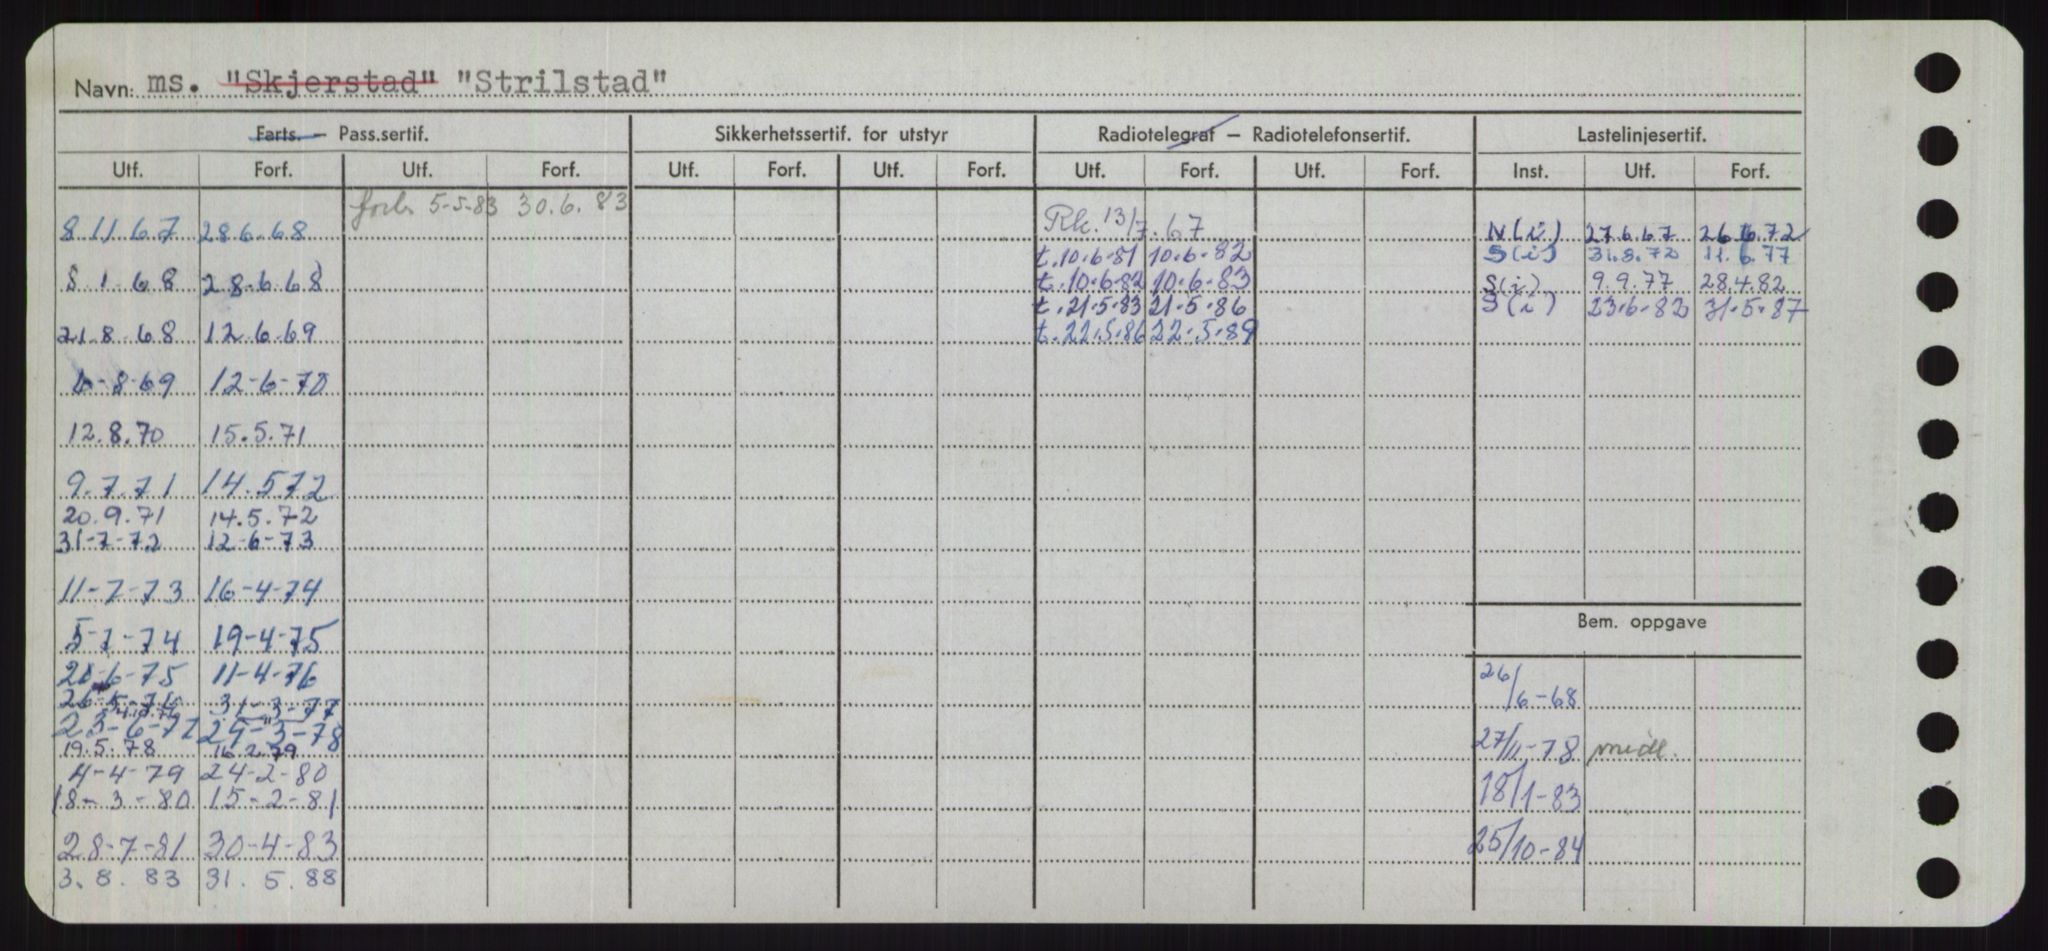 Navn: ms. "Skjerstad" "Strilstad"
Farts. — Pass.sertif. Sikkerhetssertif. for utstyr Radiotelegraf — Radiotelefonsertif. Lastelinjesertif.
Utf. Forf. Utf. Forf. Utf. Forf. Utf. Forf. Utf. Forf. Utf. Forf. Inst. Utf. Forf.
5-5-83 30.6.83
8 11 67 28 6.68 Rk. 13/7.67 N(i) 27.6.67 26.6.72
t.10.6-81 10.6-82 S(i) 31.8.72 11.6.77
8 1 68 28.6.68 t.10.6-82 10.6-83 S(i) 9.9.77 28.4.82
t.21.5.83 21.5.86 S(i) 23.6-82 31.5.87
21.8.68 12.6.69 t.22.5.86 22.5.89
6-8-69 12-6-70
12.8.70 15.5.71
9.7.71 14.5 72
20.9.71 14.5.72
31-7-72 12-6-73
11-7-73 16-4-74
Bem. oppgave
5-7-74 19-4-75
20-6-75 11-4-76
26/6-68
26-5-76 31-3-77
23-6-77 25-3-78
19.5.78 16.2.79 27/11-78
4-4-79 24-2-80
18-3-80 15-2-81 18/1-83
28-7-81 30-4-83 25/10-84
3.8.83 31.5.88